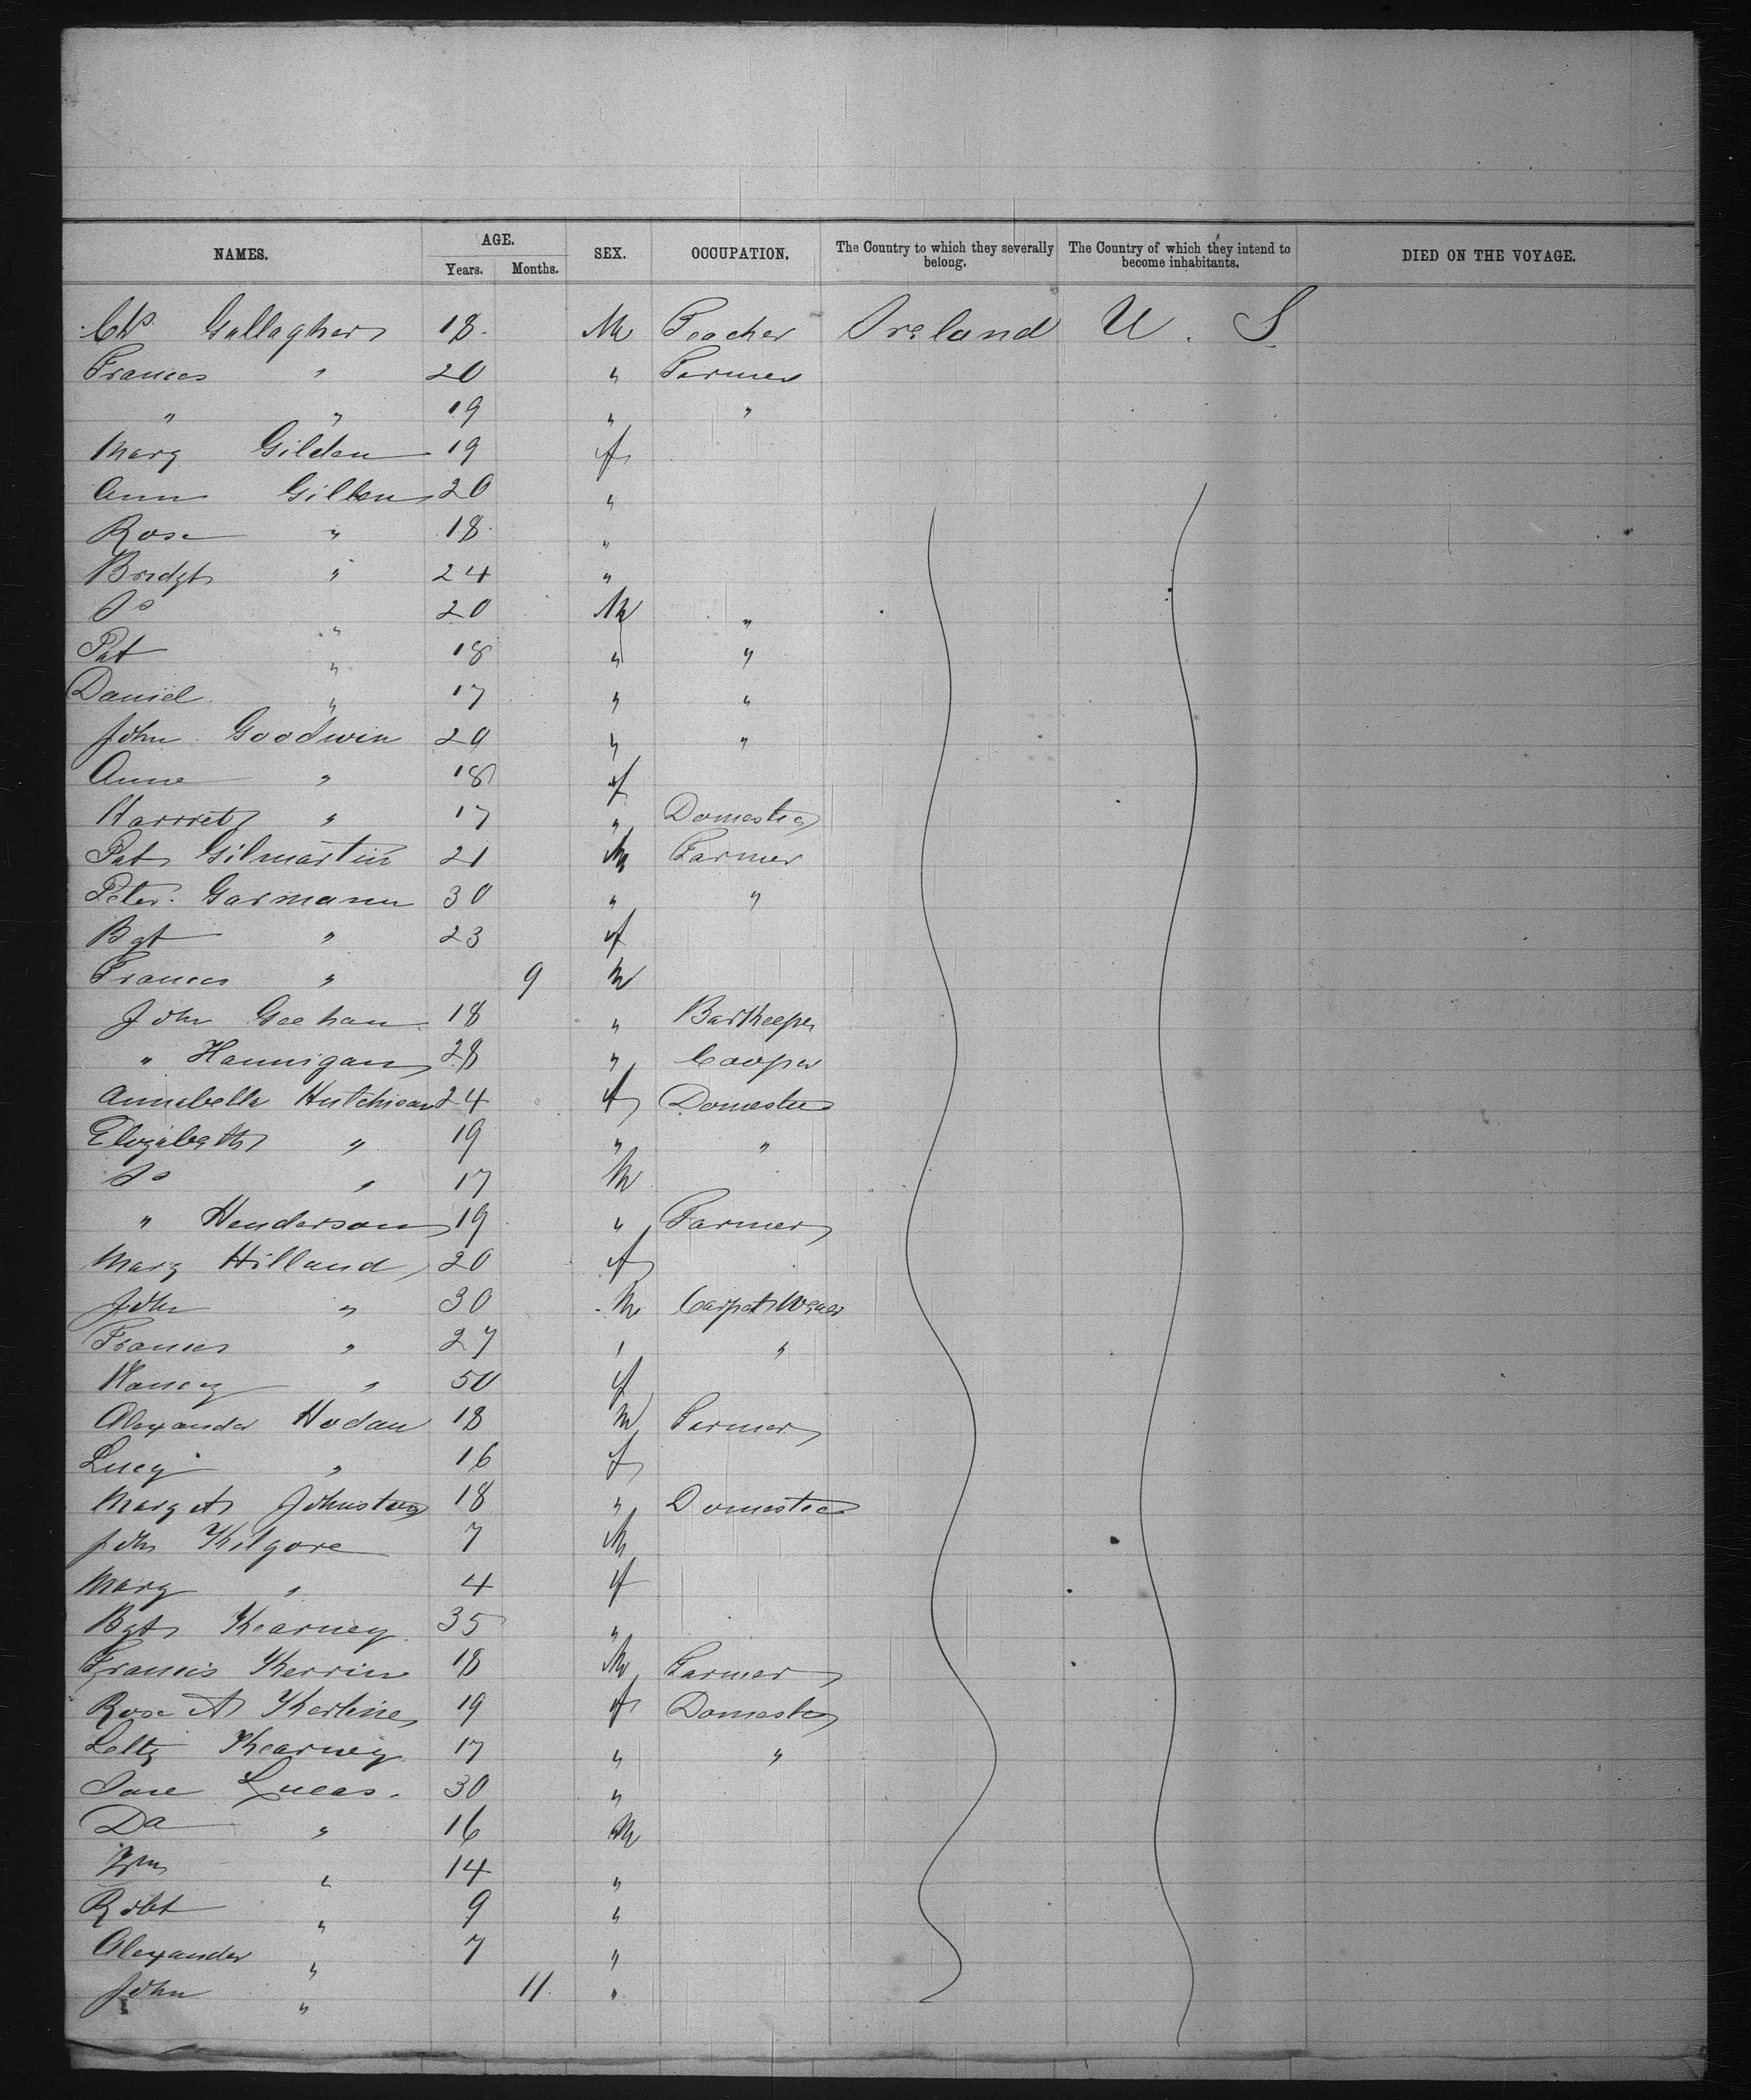 NAMES. AGE. SEX. OCCUPATION. The Country to which they severally belong. The Country of which they intend to become inhabitants. DIED ON THE VOYAGE.
Years. Months.
Chs Gallagher 18 M Teacher Ireland U. S
Frances " 20 " Farmer
" " 19 " "
Mary Gilden 19 f
Ann Gillen 20 "
Rose " 18 "
Bridgt " 24 "
Js " 20 M "
Pat " 18 " "
Daniel " 17 " "
John Goodwin 20 " "
Anne " 18 f
Harriet " 17 " Domestic
Pat Gilmartin 21 M Farmer
Peter Garmann 30 " "
Bgt " 23 f
Frances " 9 M
John Geehan 18 " Barkeeper
" Hannigan 28 " Cooper
Annabella Hutchison 24 f Domestic
Elizabeth " 19 " "
Js " 17 M
" Henderson 19 " Farmer
Mary Hilland 20 f
John " 30 M Carpet Weaver
Frances " 27 " "
Nancy " 50 f
Alexander Hodan 18 M Farmer
Lucy " 16 f
Margt Johnston 18 " Domestic
John Kilgore 7 M
Mary " 4 f
Bgt Kearney 35 "
Francis Kerrin 18 M Farmer
Rose A Kerline 19 f Domestic
Letty Kearney 17 " "
Jane Lucas 30 "
Da " 16 M
Wm " 14 "
Robt " 9 "
Alexander " 7 "
John " 11 "